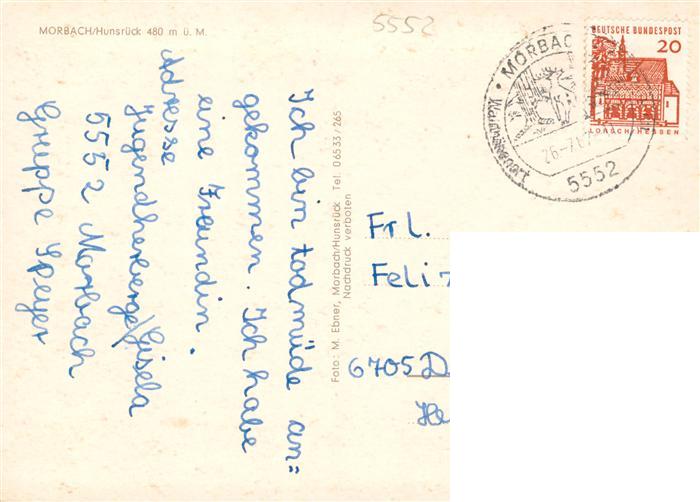 MORBACH/Hunsrück 480 m ü. M.
5552
Ich bin todmüde an=
gekommen. Ich habe
eine Freundin.
Adresse
Jugendherberge/Gisela
5552 Morbach
Gruppe Speyer
Foto: M. Ebner, Morbach/Hunsrück Tel. 06533/265
Nachdruck verboten
DEUTSCHE BUNDESPOST
20
LORSCH/HESSEN
MORBAC
26.-7.67
5552
Frl.
Feli
6705 D